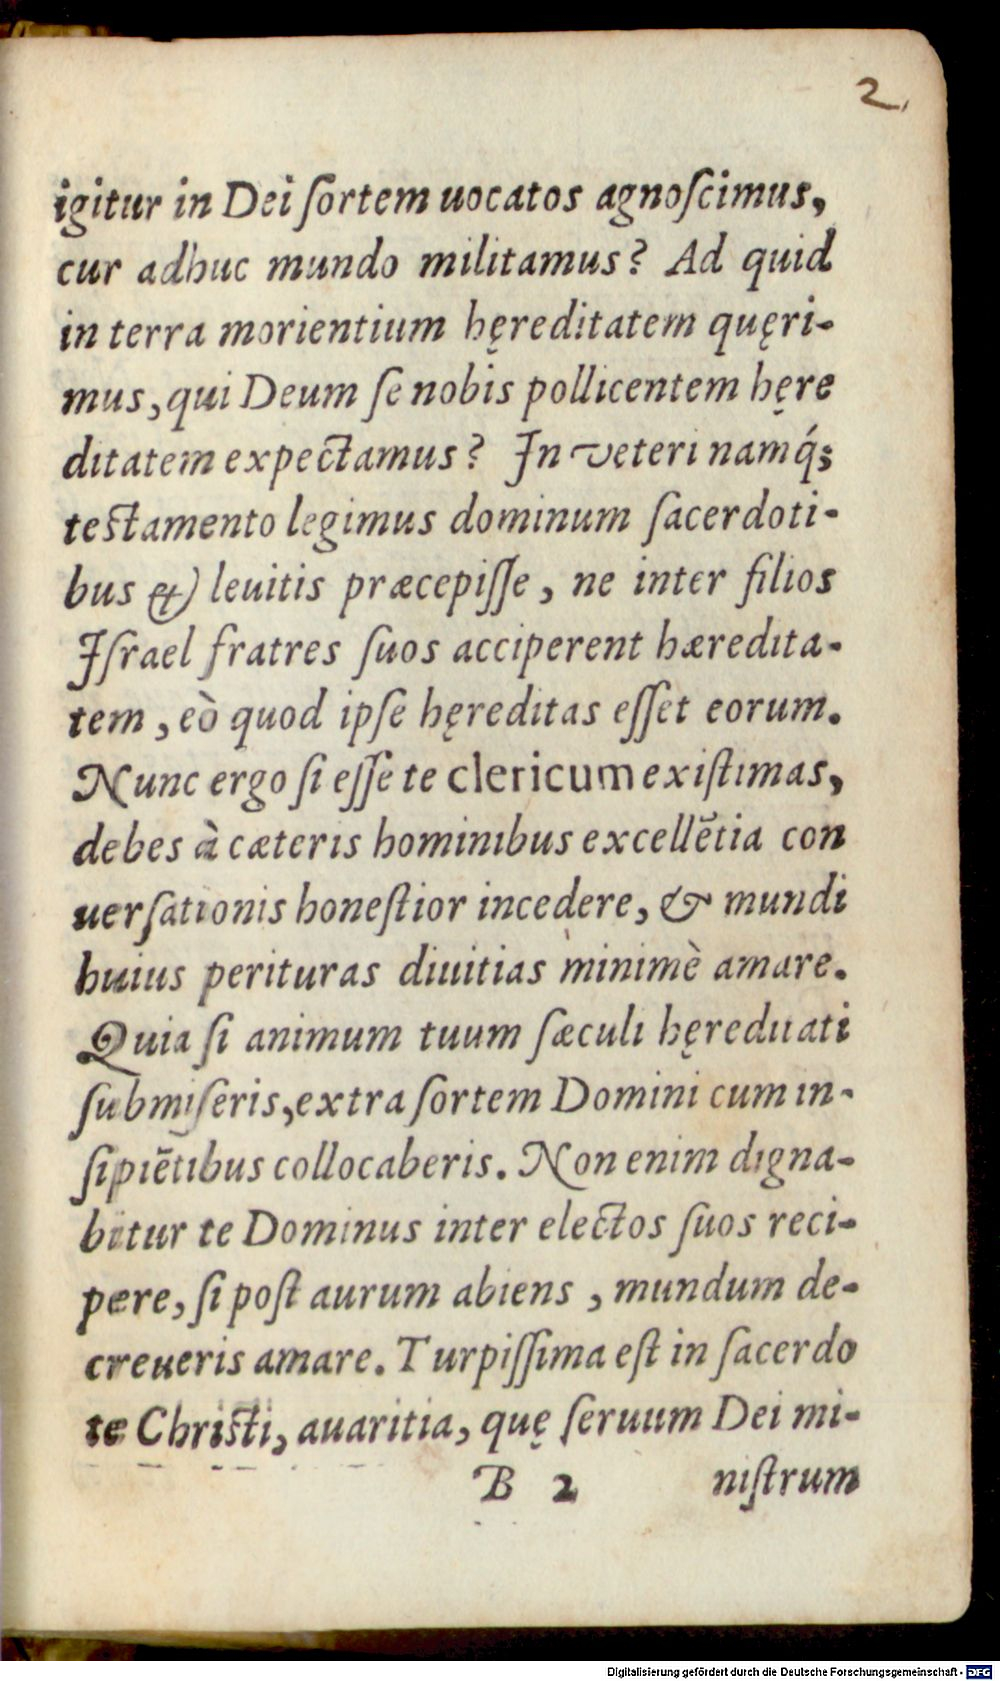 2.
igitur in Dei ſortem uocatos agnoſcimus,
cur adhuc mundo militamus? Ad quid
in terra morientium hęreditatem quęri-
mus, qui Deum ſe nobis pollicentem hęre
ditatem expectamus? In veteri namq́;
teſtamento legimus dominum ſacerdoti-
bus & leuitis præcepiſſe, ne inter filios
Iſrael fratres ſuos acciperent hæredita-
tem, eò quod ipſe hęreditas eſſet eorum.
Nunc ergo ſi eſſe te clericum exiſtimas,
debes à cæteris hominibus excellẽtia con
uerſationis honeſtior incedere, & mundi
huius perituras diuitias minimè amare.
Quia ſi animum tuum ſæculi hęreduati
ſubmiſeris, extra ſortem Domini cum in-
ſipiẽtibus collocaberis. Non enim digna-
bitur te Dominus inter electos ſuos reci-
pere, ſi poſt aurum abiens, mundum de-
creueris amare. Turpiſſima eſt in ſacerdo
te Chriſti, auaritia, quę ſeruum Dei mi-
B 2 niſtrum
Digitalisierung gefördert durch die Deutsche Forschungsgemeinschaft - DFG